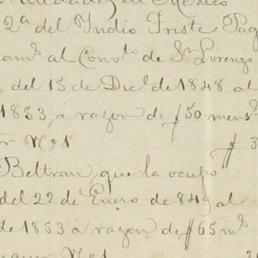 en Mexico
2ª del Indio Triste Pag
amº al Convto de Sn Lorenzo
del 15 de Dicº de 1848 al
1853 a razon de $50 mens
Nº 1 $ 3
Beltran que la ocupó
del 22 de Enero de 849 al
de 1853 a razon de $65 ms
Nº 1